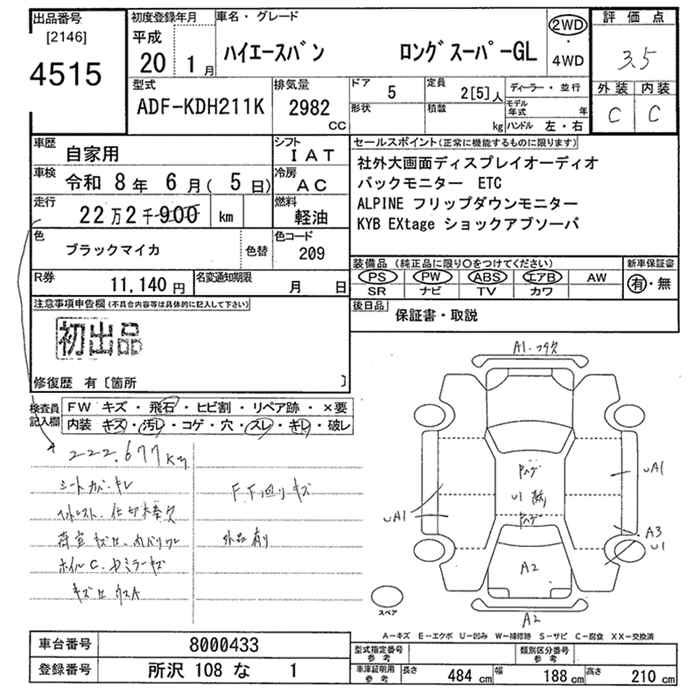 出品番号
[2146]
4515
初度登録年月
平成
20 1月
車名・グレード
ハイエースバン ロングスーパーGL
2WD
・
4WD
評価点
3.5
外装 内装
C C
型式
ADF-KDH211K
排気量
2982
CC
ドア
5
定員
2[5]人
ディーラー・並行
形状
積数
kg
モデル年式 年
ハンドル 左・右
車歴
自家用
シフト
IAT
車検
令和 8年 6月(5日)
冷房
AC
走行
22万2千900 km
燃料
軽油
色
ブラックマイカ
色替
色コード
209
R券
11,140円
名変通知期限
月 日
セールスポイント(正常に機能するものに限ります)
社外大画面ディスプレイオーディオ
バックモニター ETC
ALPINE フリップダウンモニター
KYB EXtage ショックアブソーバ
装備品(純正品に限り○をつけてください)
PS PW ABS エアB AW
SR ナビ TV カワ
新車保証書
有・無
後日品
保証書・取説
注意事項申告欄(不具合内容等は具体的に記入して下さい)
初出品
修復歴 有〔箇所 〕
検査員
記入欄
FW キズ・飛石・ヒビ割・リペア跡・×要
内装 キズ・汚レ・コゲ・穴・スレ・キレ・破レ
222.677Km
シートカバーキレ
F.F廻りキズ
外品有り
A1・フタ欠
UA1
UA1
A3
U1
A2
A2
スペア
A-キズ E-エクボ U-凹み W-補修跡 S-サビ C-腐食 XX-交換済
車台番号
8000433
登録番号
所沢 108 な 1
型式指定番号
参考
類別区分番号
参考
車庫証明用
参考
長さ 484 cm
幅 188 cm
高さ 210 cm